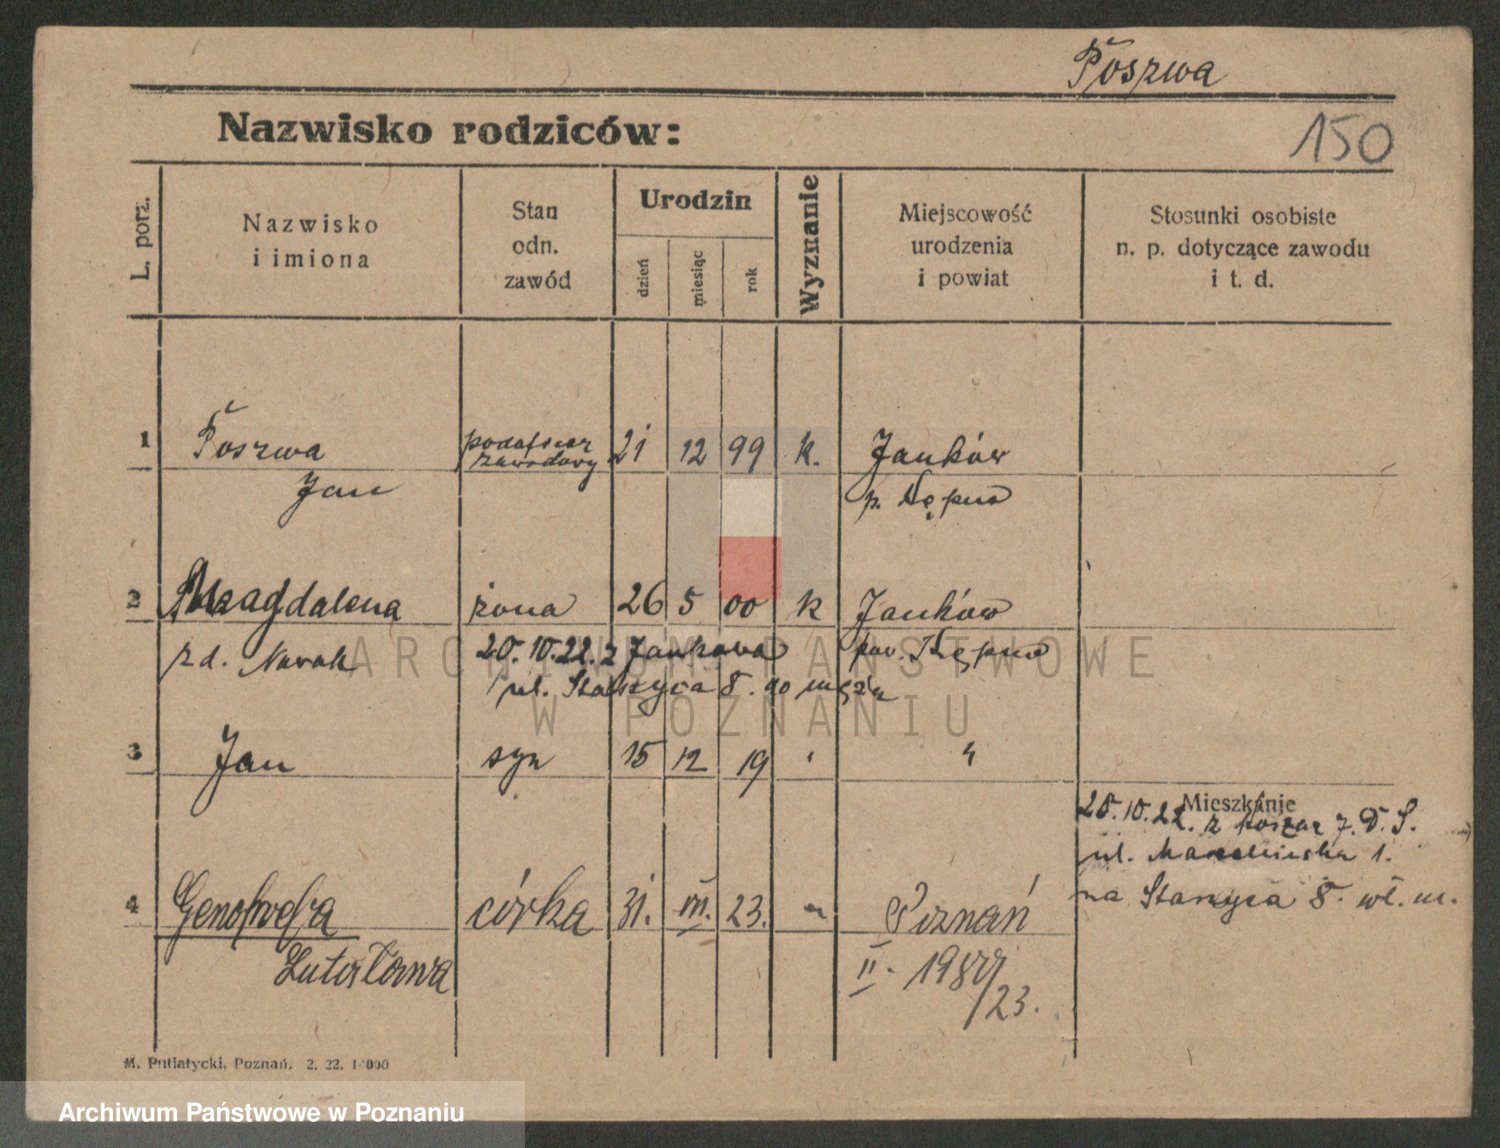 Poszwa
Nazwisko rodziców:
150
L. porz.
Nazwisko
i imiona
Stan
odn.
zawód
Urodzin
dzień
miesiąc
rok
Wyznanie
Miejscowość
urodzenia
i powiat
Stosunki osobiste
n. p. dotyczące zawodu
i t. d.
1 Poszwa podoficer zawodowy 21 12 99 k. Janków
Jan p. Kępno
2 Magdalena żona 26 5 00 k Janków
zd. Nowak pow. Kępno
20.10.22. z Jankowa
ul. Staszyca 8. do męża
3 Jan syn 15 12 19 " "
Mieszkanie
20.10.22. z koszar 7. D. S.
ul. 1.
na Staszyca 8. wł. m.
4 Genowefa córka 31. VII. 23. " Poznań
II. 1987/23.
M. Putiatycki, Poznań. 2. 22. 1 000
ARCHIWUM PAŃSTWOWE
W POZNANIU
Archiwum Państwowe w Poznaniu